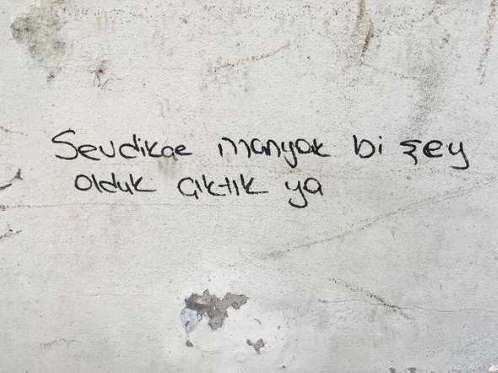 Sevdikçe manyak bi şey
olduk çıktık ya